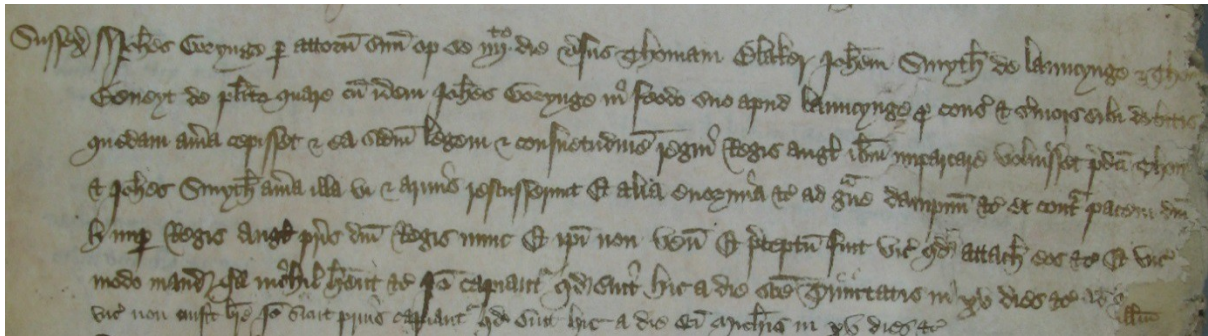 Sussex Joh̄es Gorynge p̱ attorn̄ suū op se iiijto die v̄sus Thomam Blaker Joh̄em Smyth de launcynge & Thom
Beneyt de pl̄ito quare cū idem Joh̄es Gorynge in feodo suo apud launcynge p̱ cons̄ & s̄uiciis sibi debitis
quedam aīlia cepisset & ea scd̄m legem & consuetudinē regni Regis Angl̄ ib̄m imparcare voluisset p̄d̄ci Thom
& Joh̄es Smyth aīlia illa vi & armis rescusserunt Et alia enormia &c̄ ad gͣue dampnū &c̄ & contͣ pacem dn̄i
H nup̱ Regis Angl̄ pr̄is dn̄i Regis nunc Et ip̄i non ven̄ Et p̄ceptū fuit vic̄ qd̄ attach̄ eos &c̄ Et vic̄
modo mand̄ qd̄ nichil h̄ent &c̄ Jō capiantͬ qd̄ sint hic a die sc̄e Trinitatis in xv dies &c̄
vic̄ non misit br̄e Jō sicut prius capiantͬ qd̄ sint hic a die sc̄i Mich̄is in xv dies &c̄